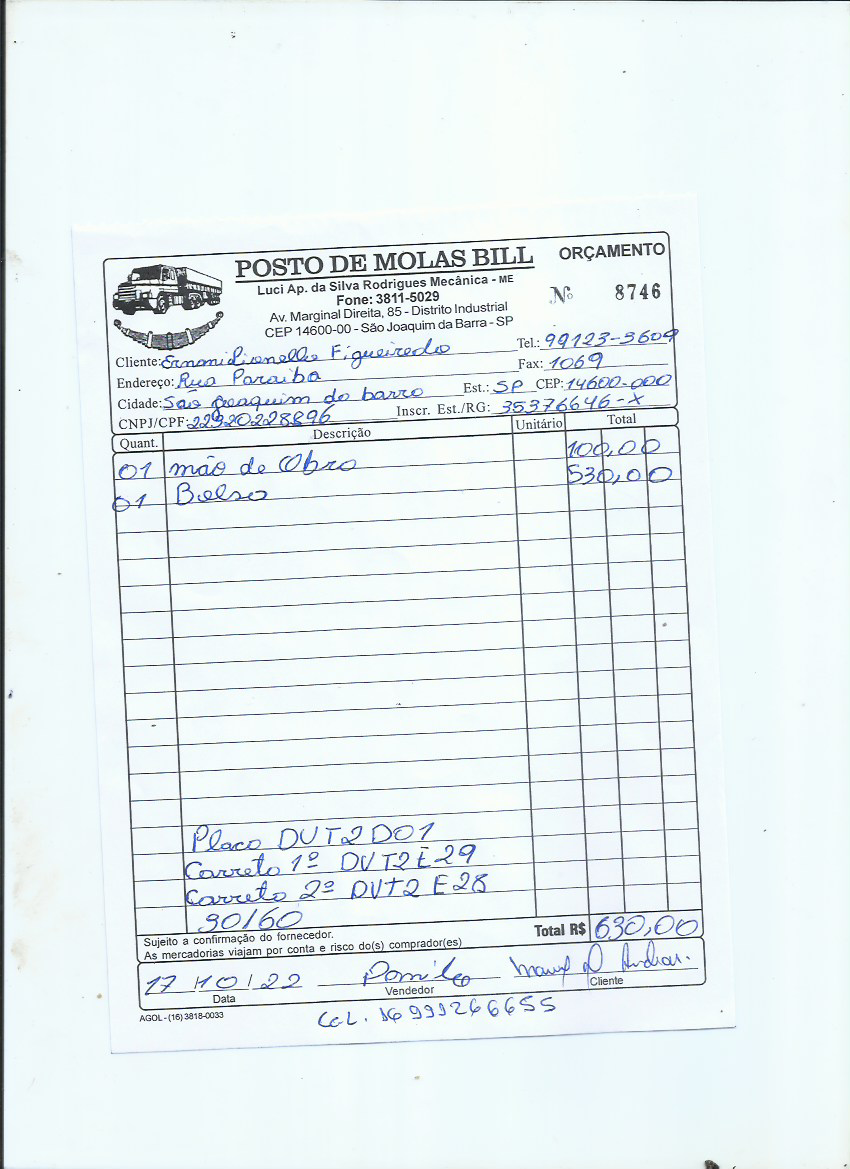 POSTO DE MOLAS BILL
ORÇAMENTO
Luci Ap. da Silva Rodrigues Mecânica - ME
Fone: 3811-5029
Nº 8746
Av. Marginal Direita, 85 - Distrito Industrial
CEP 14600-00 - São Joaquim da Barra - SP
Cliente: Ernani Lionello Figueiredo Tel.: 99123-3609
Endereço: Rua Paraiba Fax: 1069
Cidade: São Joaquim da barra Est.: SP CEP: 14600-000
CNPJ/CPF: 22920228896 Inscr. Est./RG: 35376646-X
Quant. Descrição Unitário Total
01 mão de Obra 100,00
01 Bolsa 530,00
Placa DVT2D01
Carreta 1º DVT2E29
Carreta 2º DVT2E28
30/60
Sujeito a confirmação do fornecedor.
As mercadorias viajam por conta e risco do(s) comprador(es)
Total R$ 630,00
17 / 10 / 22
Data Vendedor Cliente
AGOL - (16) 3818-0033
CeL. 16 999266655